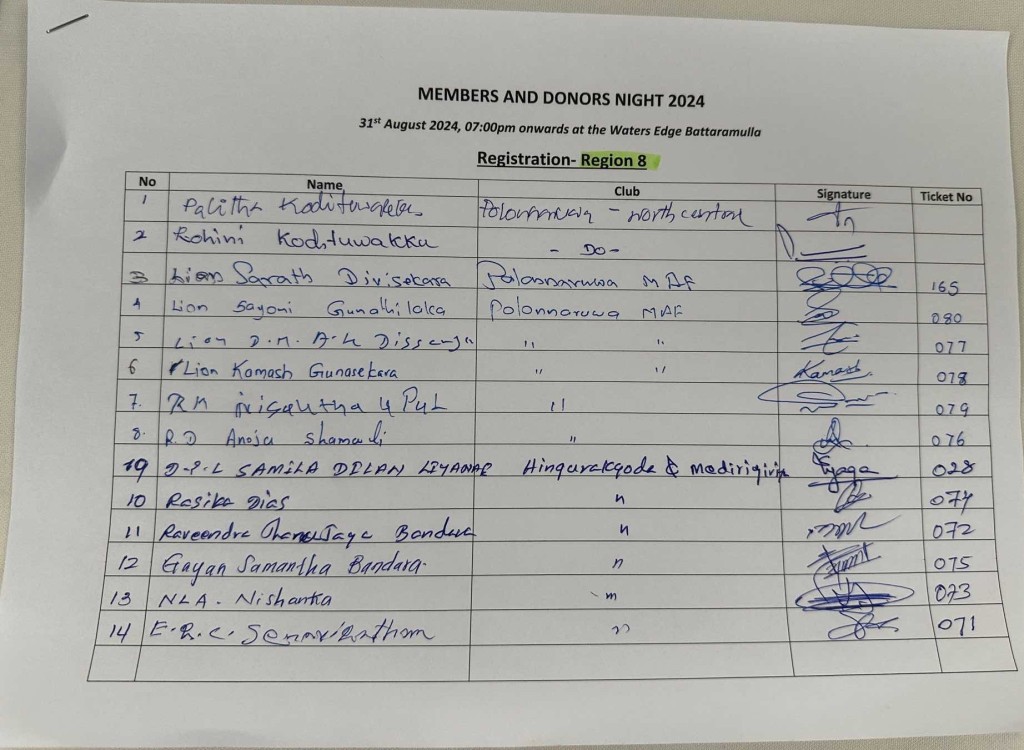 MEMBERS AND DONORS NIGHT 2024
31st August 2024, 07:00pm onwards at the Waters Edge Battaramulla
Registration- Region 8
No Name Club Signature Ticket No
1 Palitha Kodituwakku Polonnaruwa - north central
2 Rohini Kodituwakku - Do -
3 Lion Sarath Divisekara Polonnaruwa MAF 165
4 Lion Sayoni Gunathilaka Polonnaruwa MAF 080
5 Lion D.M. A.L " " 077
6 Lion Kamash Gunasekara " " Kamash 078
7. RM " 079
8. R.D Anoja Shamali " 076
9 D.P.L SAMILA DILAN LIYANAE Hingurakgoda & Medirigiriya 028
10 Rasika Dias " 074
11 Raveendra Bandara " 072
12 Gayan Samantha Bandara. " 075
13 N.L.A. Nishanka " 073
14 E.R.C. " 071